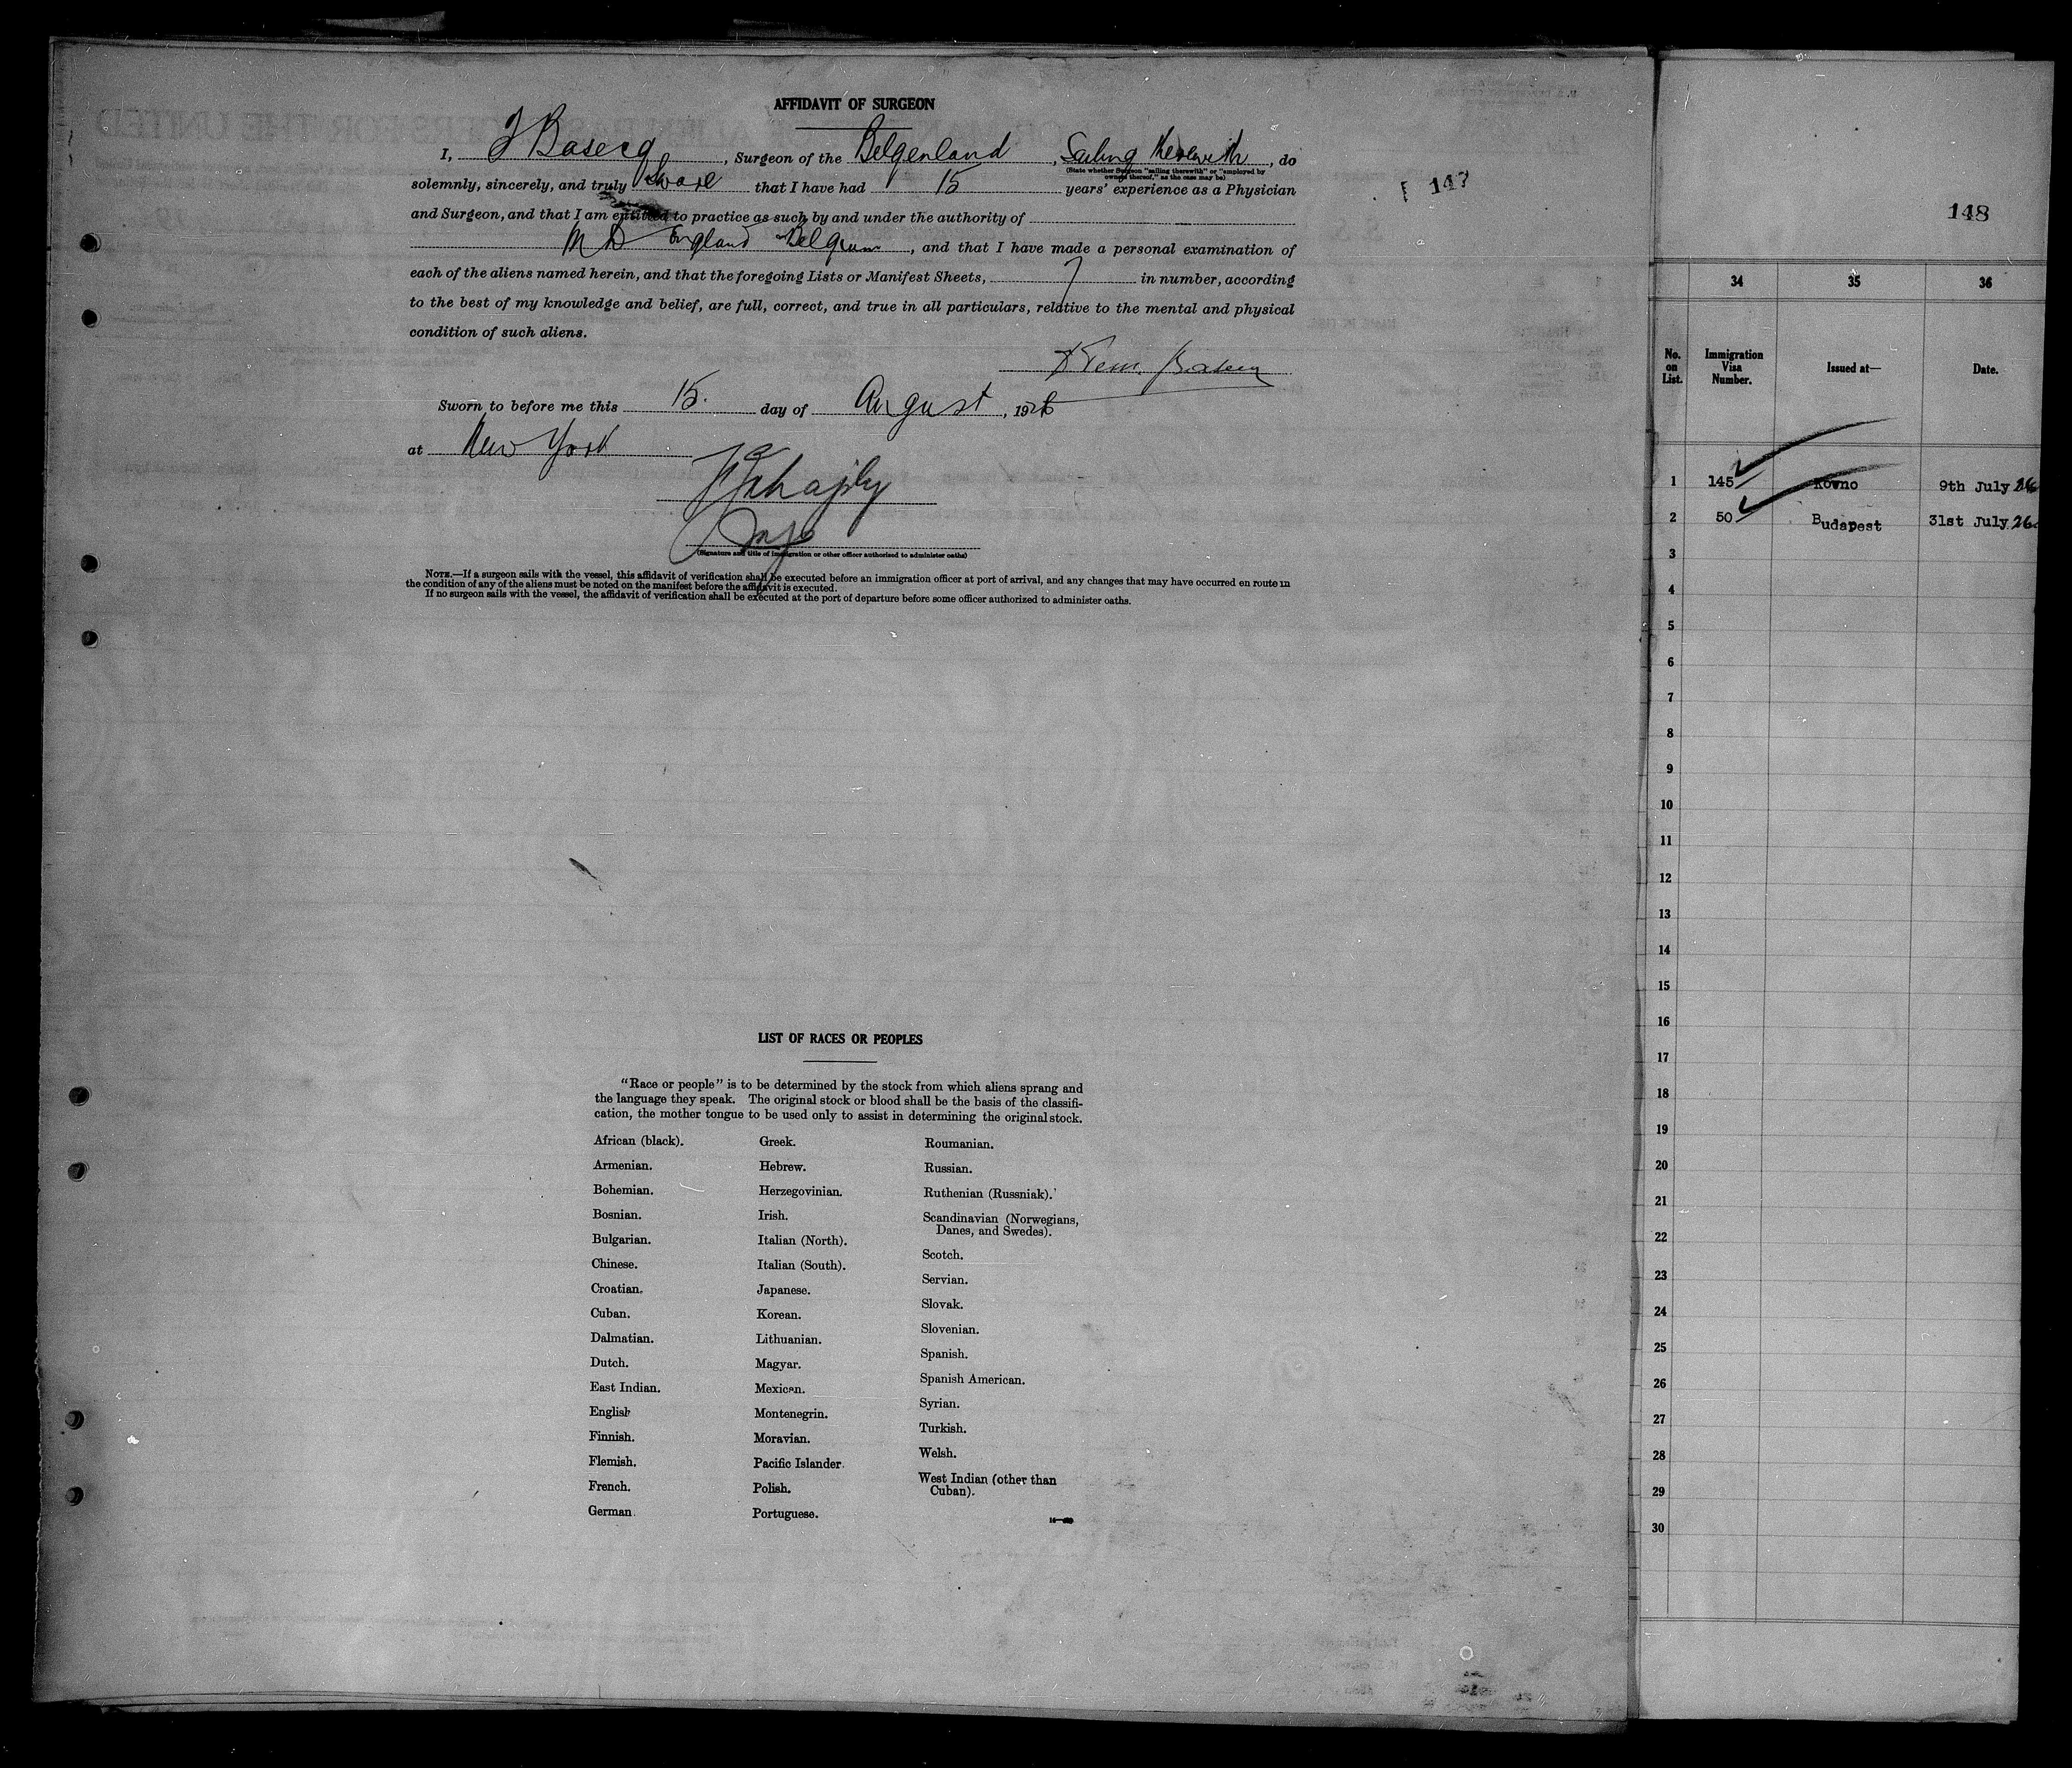 AFFIDAVIT OF SURGEON
I, J Basecq, Surgeon of the Belgenland, Sailing therewith, do
(State whether Surgeon "sailing therewith" or "employed by
owners thereof," as the case may be)
solemnly, sincerely, and truly swear that I have had 15 years' experience as a Physician
and Surgeon, and that I am entitled to practice as such by and under the authority of
M D England Belgium, and that I have made a personal examination of
each of the aliens named herein, and that the foregoing Lists or Manifest Sheets, 7 in number, according
to the best of my knowledge and belief, are full, correct, and true in all particulars, relative to the mental and physical
condition of such aliens.
Sworn to before me this 15. day of August, 1926
at New York
(Signature and title of immigration or other officer authorized to administer oaths)
NOTE.—If a surgeon sails with the vessel, this affidavit of verification shall be executed before an immigration officer at port of arrival, and any changes that may have occurred en route in
the condition of any of the aliens must be noted on the manifest before the affidavit is executed.
If no surgeon sails with the vessel, the affidavit of verification shall be executed at the port of departure before some officer authorized to administer oaths.
147
LIST OF RACES OR PEOPLES
"Race or people" is to be determined by the stock from which aliens sprang and
the language they speak. The original stock or blood shall be the basis of the classifi-
cation, the mother tongue to be used only to assist in determining the original stock.
African (black).
Armenian.
Bohemian.
Bosnian.
Bulgarian.
Chinese.
Croatian.
Cuban.
Dalmatian.
Dutch.
East Indian.
English
Finnish.
Flemish.
French.
German.
Greek.
Hebrew.
Herzegovinian.
Irish.
Italian (North).
Italian (South).
Japanese.
Korean.
Lithuanian.
Magyar.
Mexican.
Montenegrin.
Moravian.
Pacific Islander.
Polish.
Portuguese.
Roumanian.
Russian.
Ruthenian (Russniak).
Scandinavian (Norwegians,
Danes, and Swedes).
Scotch.
Servian.
Slovak.
Slovenian.
Spanish.
Spanish American.
Syrian.
Turkish.
Welsh.
West Indian (other than
Cuban).
148
34 35 36
No. on List. Immigration Visa Number. Issued at— Date.
1 145 Kovno 9th July 26
2 50 Budapest 31st July 26
3
4
5
6
7
8
9
10
11
12
13
14
15
16
17
18
19
20
21
22
23
24
25
26
27
28
29
30